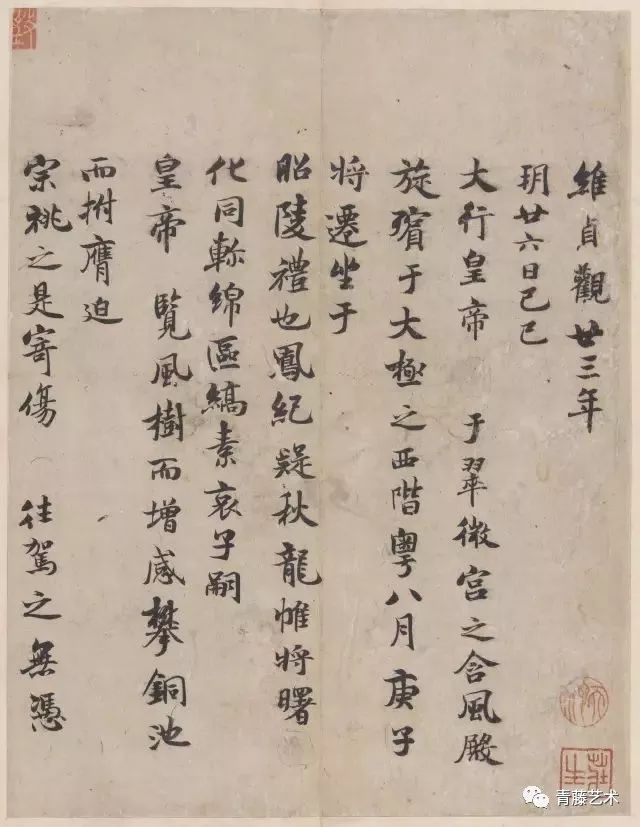 維貞觀廿三年
玥廿六日己巳
大行皇帝 于翠微宮之含風殿
旋殯于大極之西階粵八月庚子
將遷坐于
昭陵禮也鳳紀疑秋龍帷將曙
化同軫綿區縞素哀子嗣
皇帝 覽風樹而增感攀銅池
而拊膺迫
宗祧之是寄傷 往駕之無憑
青藤艺术